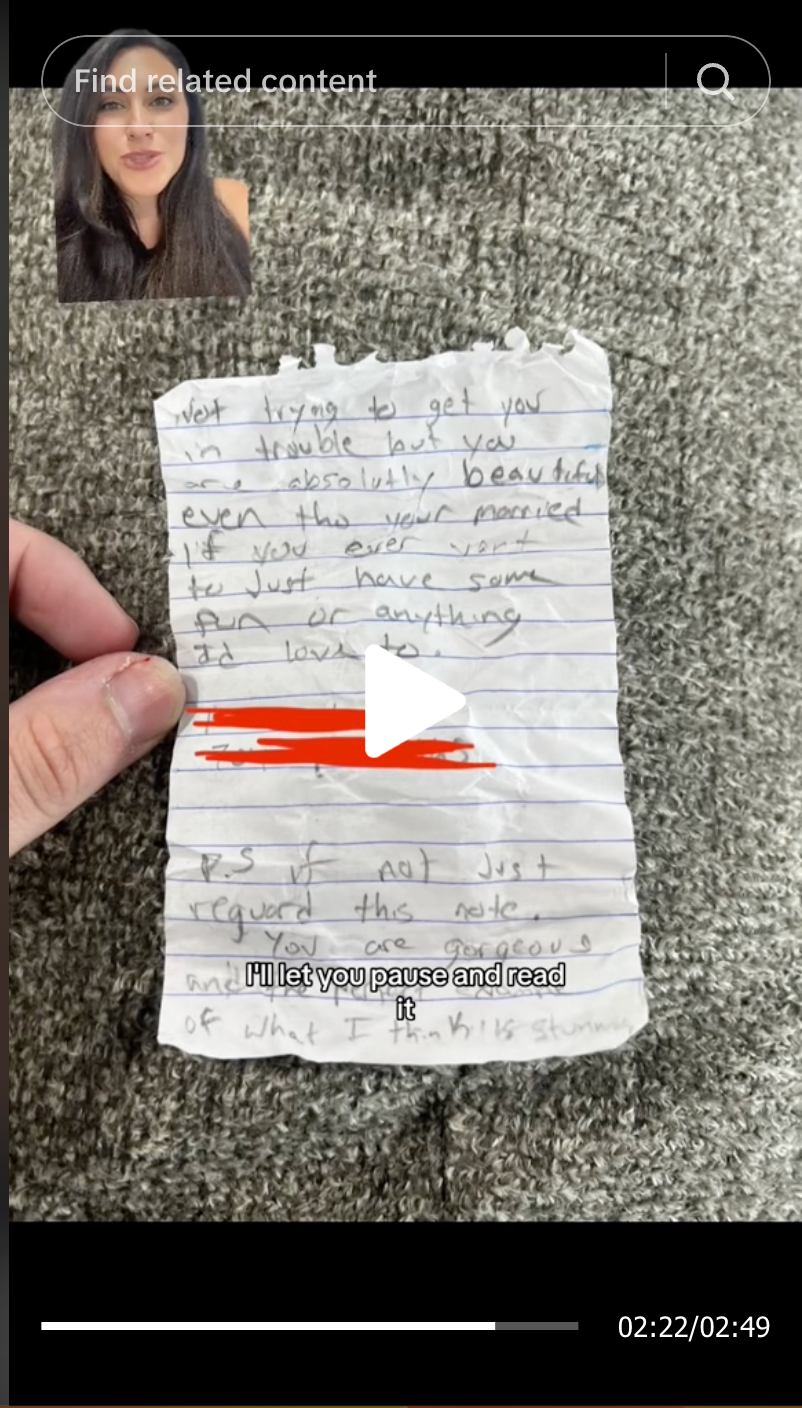 Find related content
Not trying to get you
in trouble but you
are absolutly beautiful
even tho your married
if you ever want
to Just have some
fun or anything
Id love to.
P.S if not Just
reguard this note.
You are gorgeous
I'll let you pause and read
it
and the
of what I think is stunning
02:22/02:49